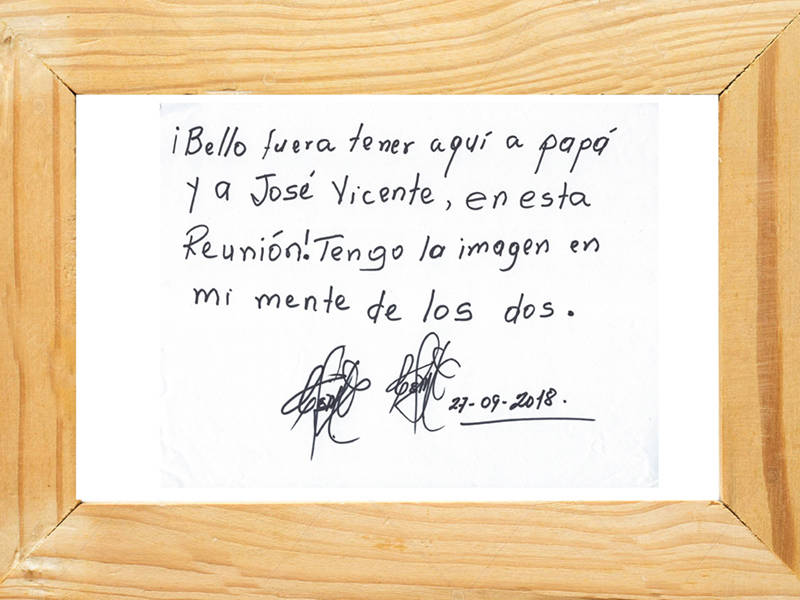 ¡Bello fuera tener aquí a papá
y a José Vicente, en esta
Reunión! Tengo la imagen en
mi mente de los dos.
27-09-2018.